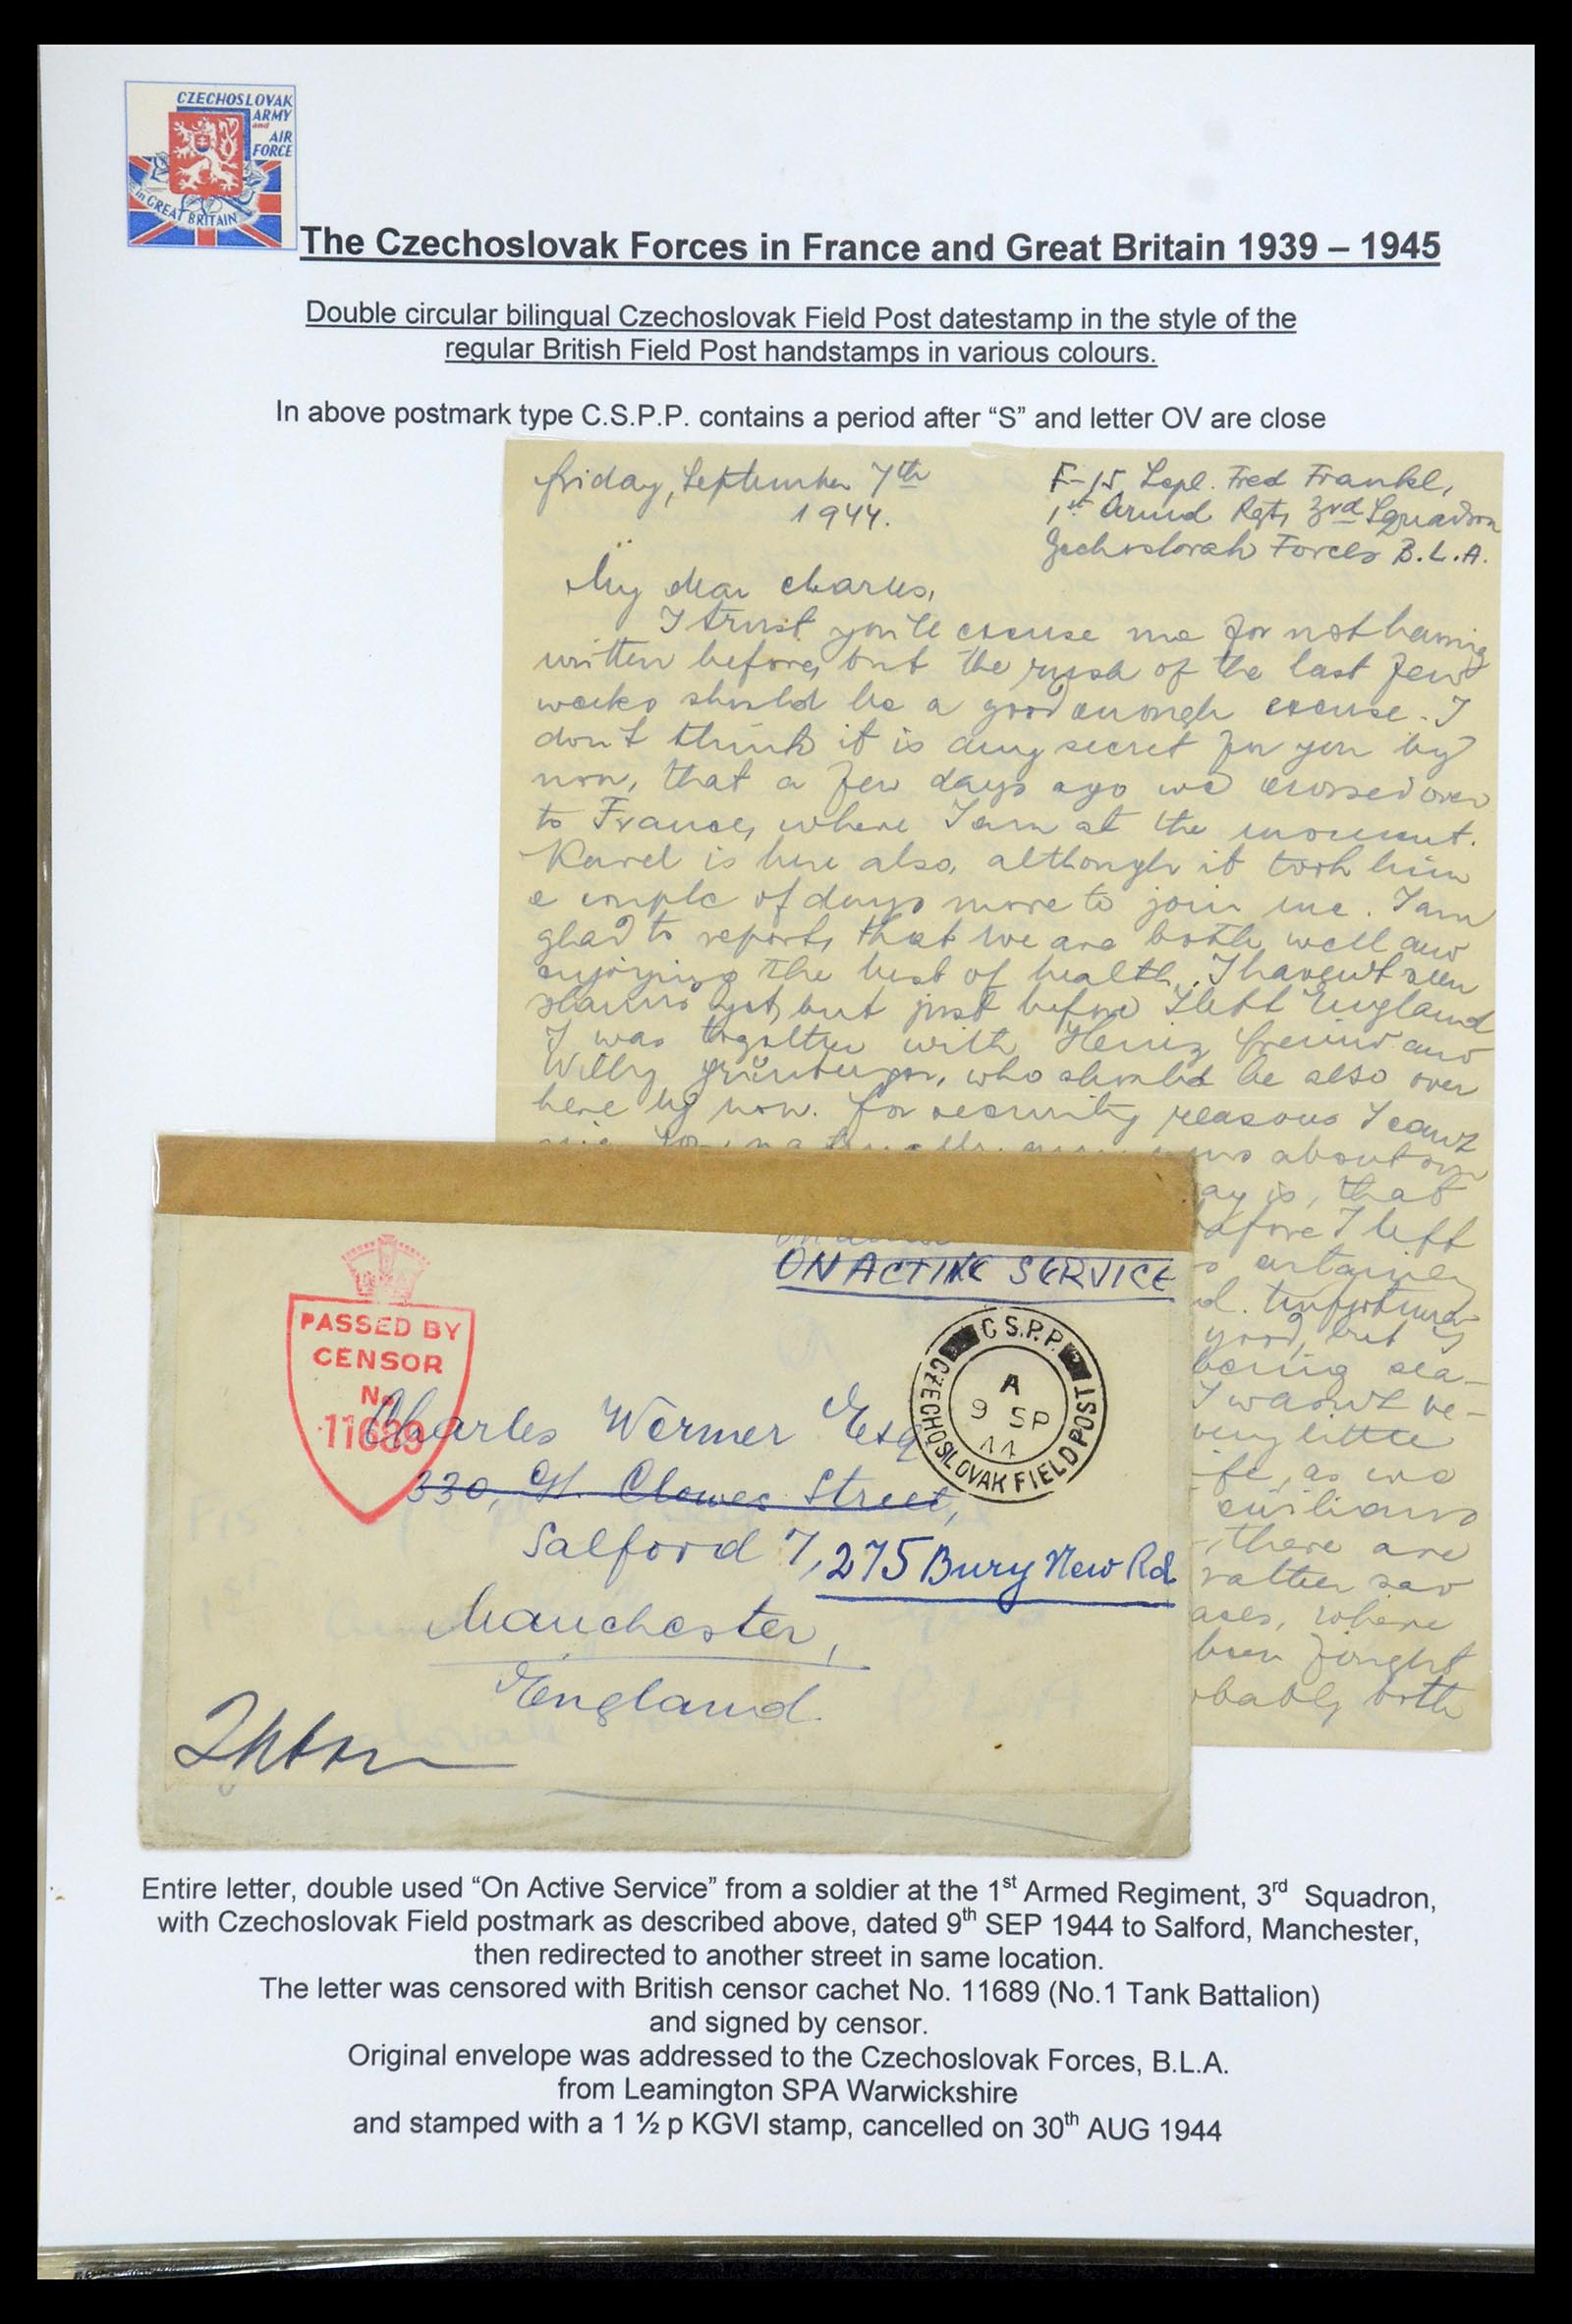 CZECHOSLOVAK
ARMY
and
AIR
FORCE
in GREAT BRITAIN
The Czechoslovak Forces in France and Great Britain 1939 – 1945
Double circular bilingual Czechoslovak Field Post datestamp in the style of the
regular British Field Post handstamps in various colours.
In above postmark type C.S.P.P. contains a period after “S” and letter OV are close
Friday, September 7th
1944.
F-15 Lcpl. Fred Frankl,
1st Armd Rgt, 3rd Squadron
Czechoslovak Forces B.L.A.
My dear Charles,
I trust you'll excuse me for not having
written before, but the rush of the last few
weeks should be a good enough excuse. I
don't think it is any secret for you by
now, that a few days ago we crossed over
to France, where I am at the moment.
Karel is here also, although it took him
a couple of days more to join me. I am
glad to report, that we are both well and
enjoying the best of health. I haven't seen
yet, but just before I left England
I was together with Heinz Freund and
Willy, who should be also over
here by now. For security reasons I can't
news about our
ay is, that
before I left
entertained
d. Unfortuna-
good, but
being sea-
I wasn't ve-
very little
fe, as we
civilians
, there are
rather sad
aces, where
been fought
obably both
ON ACTIVE SERVICE
PASSED BY
CENSOR
No
11689
C.S.P.P.
A
9 SP
44
CZECHOSLOVAK FIELD POST
Charles Wermer Esq
330, Gt. Clowes Street,
Salford 7, 275 Bury New Rd.
Manchester,
England.
Entire letter, double used “On Active Service” from a soldier at the 1st Armed Regiment, 3rd Squadron,
with Czechoslovak Field postmark as described above, dated 9th SEP 1944 to Salford, Manchester,
then redirected to another street in same location.
The letter was censored with British censor cachet No. 11689 (No.1 Tank Battalion)
and signed by censor.
Original envelope was addressed to the Czechoslovak Forces, B.L.A.
from Leamington SPA Warwickshire
and stamped with a 1 ½ p KGVI stamp, cancelled on 30th AUG 1944